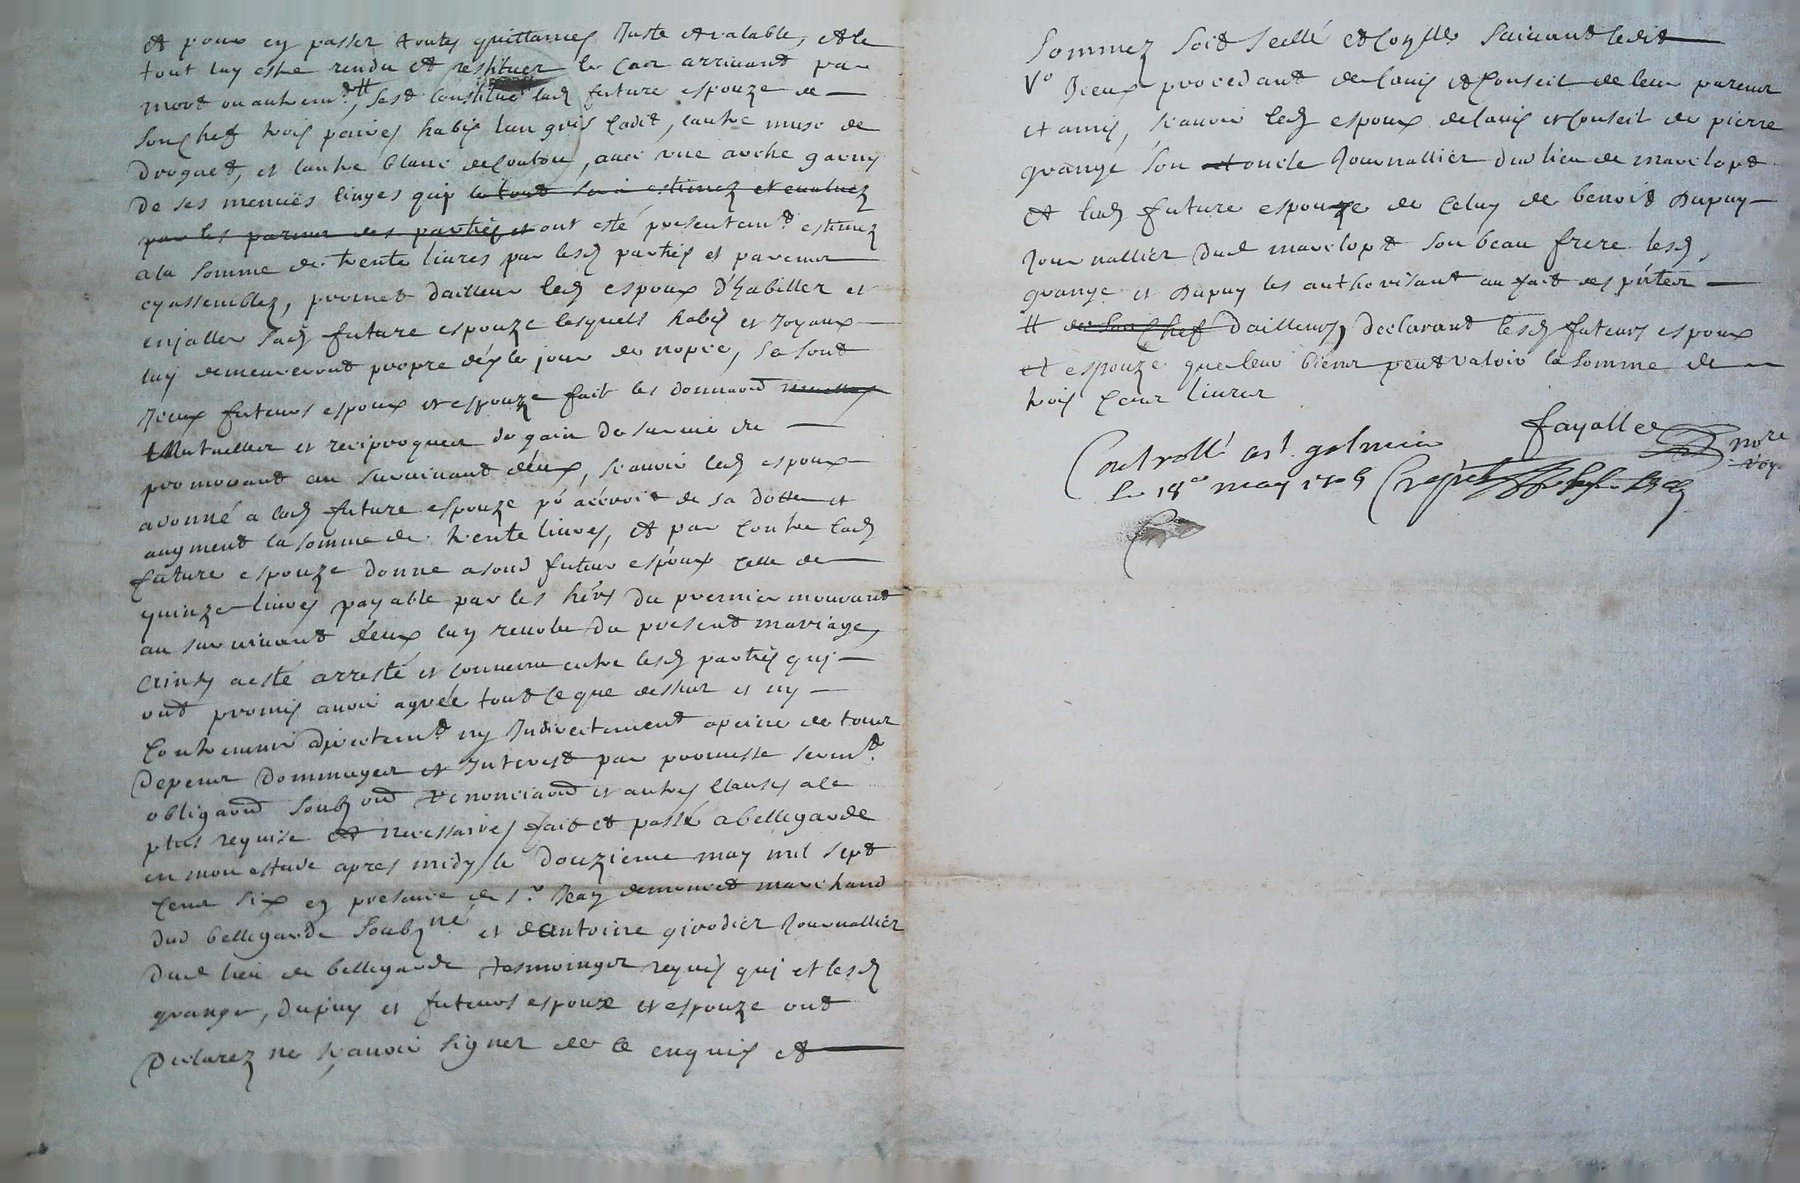 et pour en passer toutes quittances Juste et valable, et le
tout luy estre rendu et restituer le cas arrivant par
mort ou autrem.t # s'est constitué lad future espouze de
son chef trois paires habis l'un gris cadit, l'autre muse de
droguet, et l'autre blanc de couton, avec une arche garny
de ses menuës linges qui le tout sera estimez et evaluez
par les parens des parties et ont esté presentem.t estimez
a la somme de trente livres par lesd parties et parens
cy assemblez, promet d'ailleurs led espoux d'habiller et
enjaller sad future espouze lesquels habis et Joyaux
luy demeureront propre dés le jour de nopce, se sont
Iceux futurs espoux et espouze fait les donnaõn
Mutuelles et reciproques de gain de survie du
premourant au survivant d'eux, scavoir led espoux
a donné a lad future espouze pr accroit de sa dotte et
augment la somme de trente livres, et par contre lad
future espouze donne a sond futur espoux celle de
quinze livres payable par les hérs du premier mourant
au survivant d'eux l'an revolu du present mariage,
ainsy a esté arresté et convenu entre lesd parties qui
ont promis avoir agréé tout ce que dessus et ny
contrevenir directem.t ny Indirectement a peine de tous
depens dommages et Interest par promesse serm.t
obligaõn soubzõn renonciaõn et autres clauses a le
plus requise et necessaires fait et passé a bellegarde
en mon estude apres midy le douzieme may mil sept
cens six en presence de s.r Jean demoncet marchand
dud bellegarde soubz.né et d'antoine girodier Journallier
dud lieu de bellegarde tesmoinges requis qui et lesd
grange, dupuy et futurs espoux et espouze ont
declarez ne scavoir signer de ce enquis et
sommez soit seellé et conllé suivant ledit
V.o Iceux procedant de l'avis et conseil de leur parens
et amis, scavoir led espoux de l'avis et conseil de pierre
grange son oncle Journallier du lieu de marclopt
et lad future espouze de celuy de benoit Dupuy
Journallier dud marclopt son beau frere lesd
grange et Dupuy les authorisant au fait des pñtes
# de son chef d'ailleurs, declarant lesd futurs espoux
et espouze que leur biens peut valoir la somme de
trois cens livres
fayolle no.re roy.
Controllé a s.t galmier
le 18.e may 1706